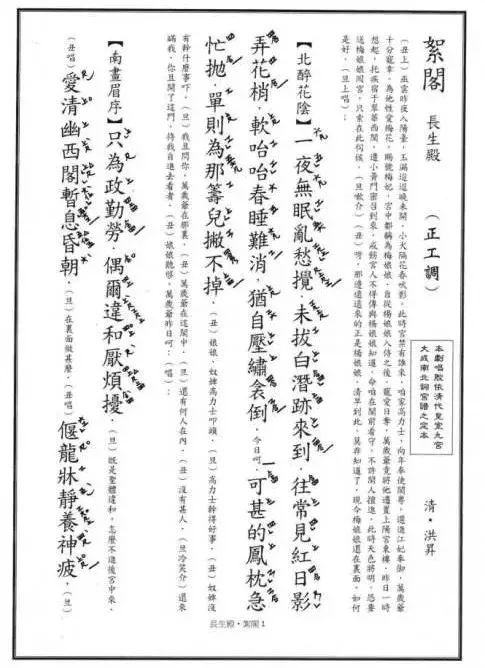 絮閣　長生殿　（正工調）
清・洪昇
本劇唱腔依清代皇室九宮
大成南北詞宮譜之定本
（丑上）巫雲昨夜入陽臺，玉漏迢迢曉未開，小犬隔花春吠影，此時宮禁有誰來，咱家高力士，向年奉使閩粵，選進江妃奉御，萬歲爺
十分寵幸，為他性愛梅花，賜號梅妃，宮中都稱為梅娘娘，自從楊娘娘入侍之後，寵愛日奪，萬歲爺竟將他遷置上陽宮東樓，昨日一時
想起，托疾宿于翠華西閣，遣小黃門密召到來，戒飭宮人不得傳與楊娘娘知道，命咱在閣前看守，不許閒人擅進，此時天色將明，恐要
送梅娘娘回宮，只索在此伺候，（旦軟介）（丑）呀，那邊遠遠來的正是楊娘娘，清早到此，莫非知道了，現今梅娘娘還在裏面，如何
是好，（旦上唱）：
【北醉花陰】一夜無眠亂愁攪，未拔白潛跡來到，往常見紅日影
弄花梢，軟咍咍春睡難消，猶自壓繡衾倒，今日呵，可甚的鳳枕急
忙拋，單則為那籌兒撇不掉，（丑）娘娘，奴婢高力士叩頭，（旦）高力士幹得好事，（丑）奴婢沒
有幹什麼事吓，（旦）我且問你，萬歲爺在那裏，（丑）萬歲爺在這閣中，（旦）還有何人在內，（丑）沒有甚人，（旦冷笑介）還來
瞞我，你且開了這門，待我自進去看者，（丑）娘娘聽啓，萬歲爺昨日呵：（唱）
【南畫眉序】只為政勤勞，偶爾違和厭煩擾，（旦）既是聖體違和，怎麼不進後宮中來，
（丑唱）愛清幽西閣，暫息昏朝，（旦）在裏面做甚麼，（丑唱）偃龍牀靜養神疲，（旦）
長生殿・絮閣 1